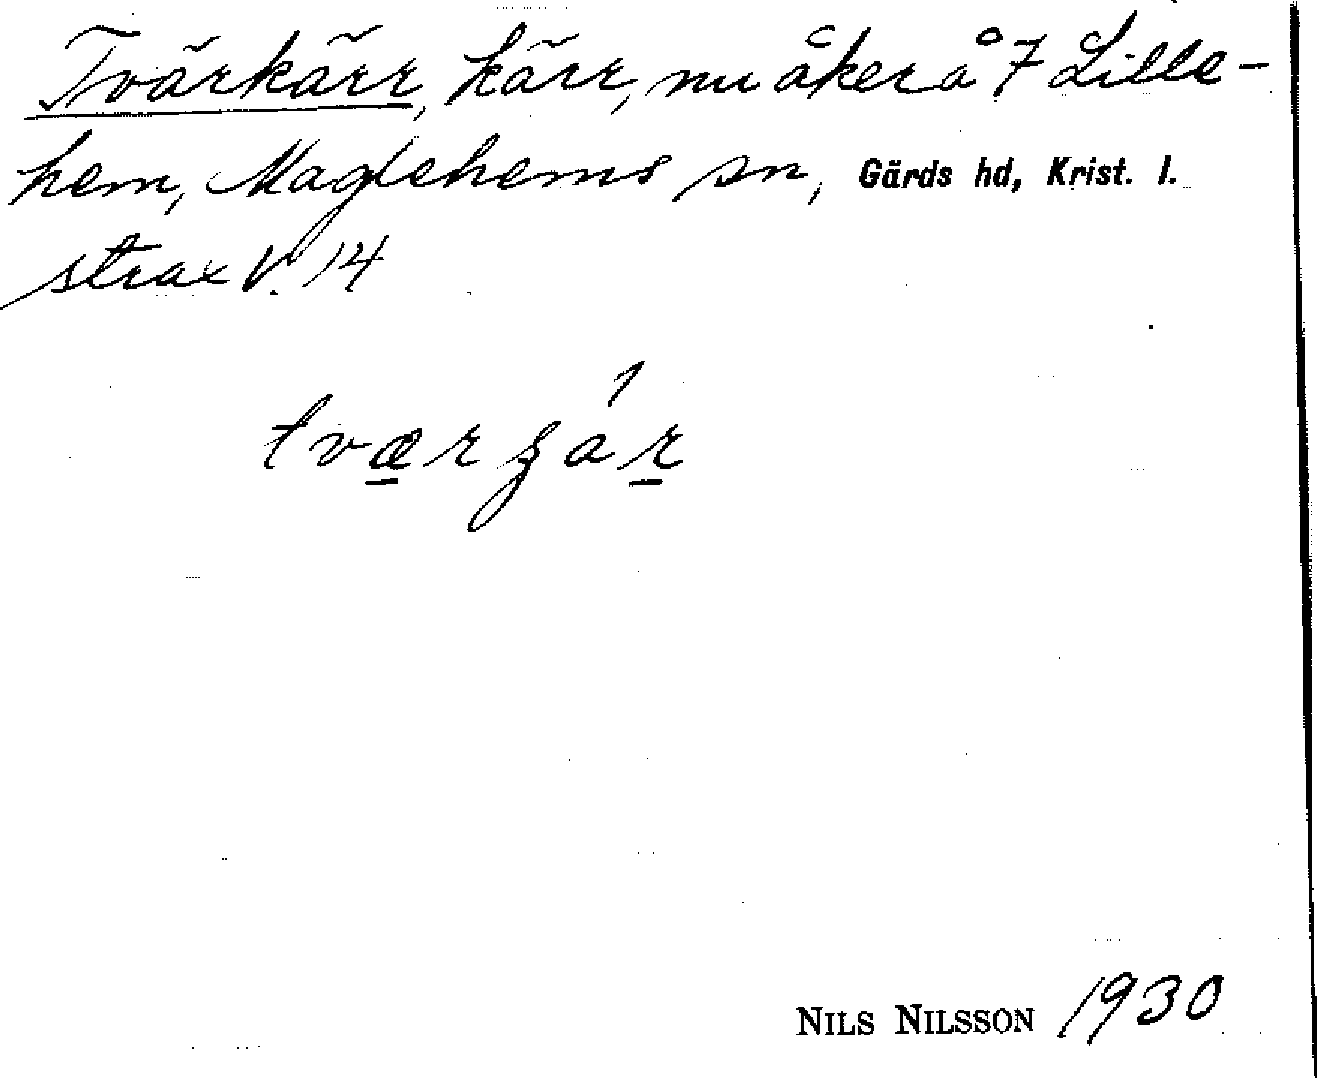 Tvärkärr, kärr, nu åker å 7 Lille-
hem, Maglehems sn, Gärds hd, Krist. l.
strax V. 14
NILS NILSSON 1930